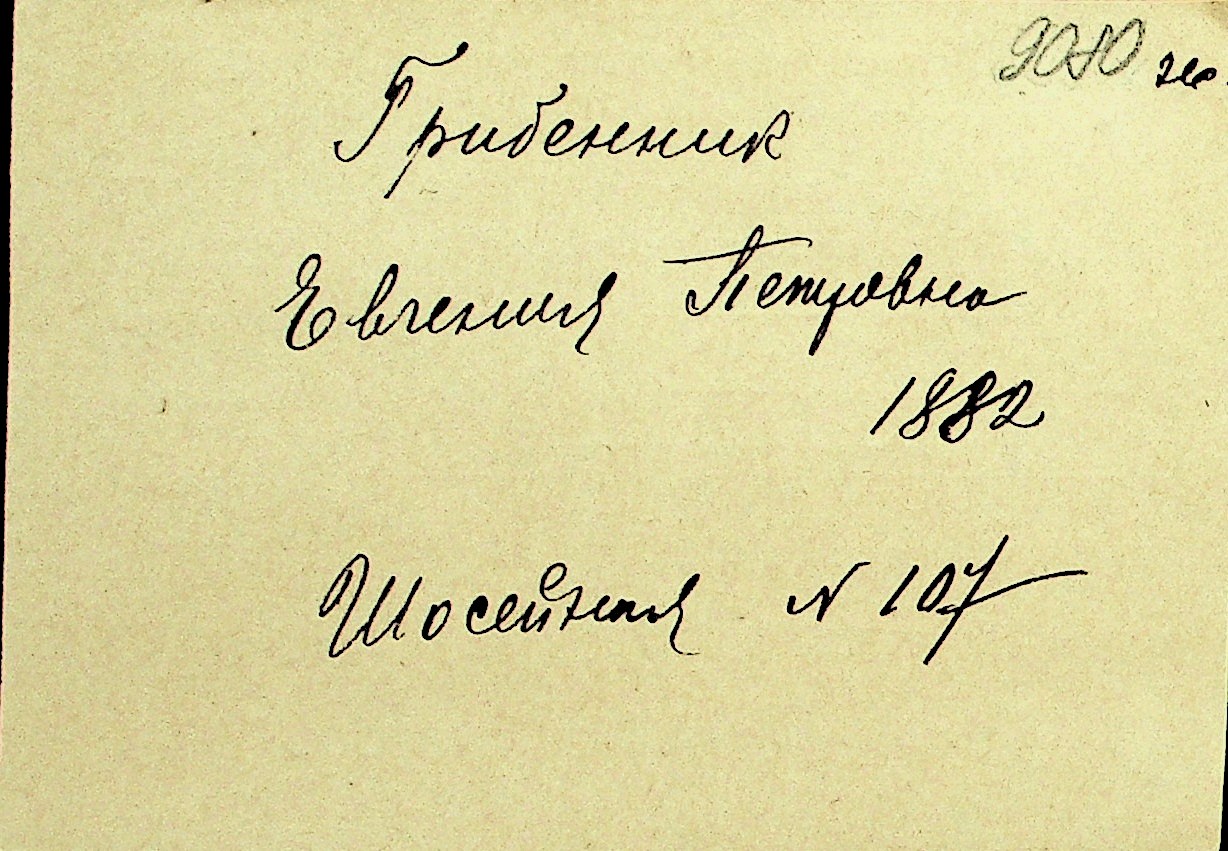 9080
Грибенник
Евгения Петровна
1882
Шосейная N 107